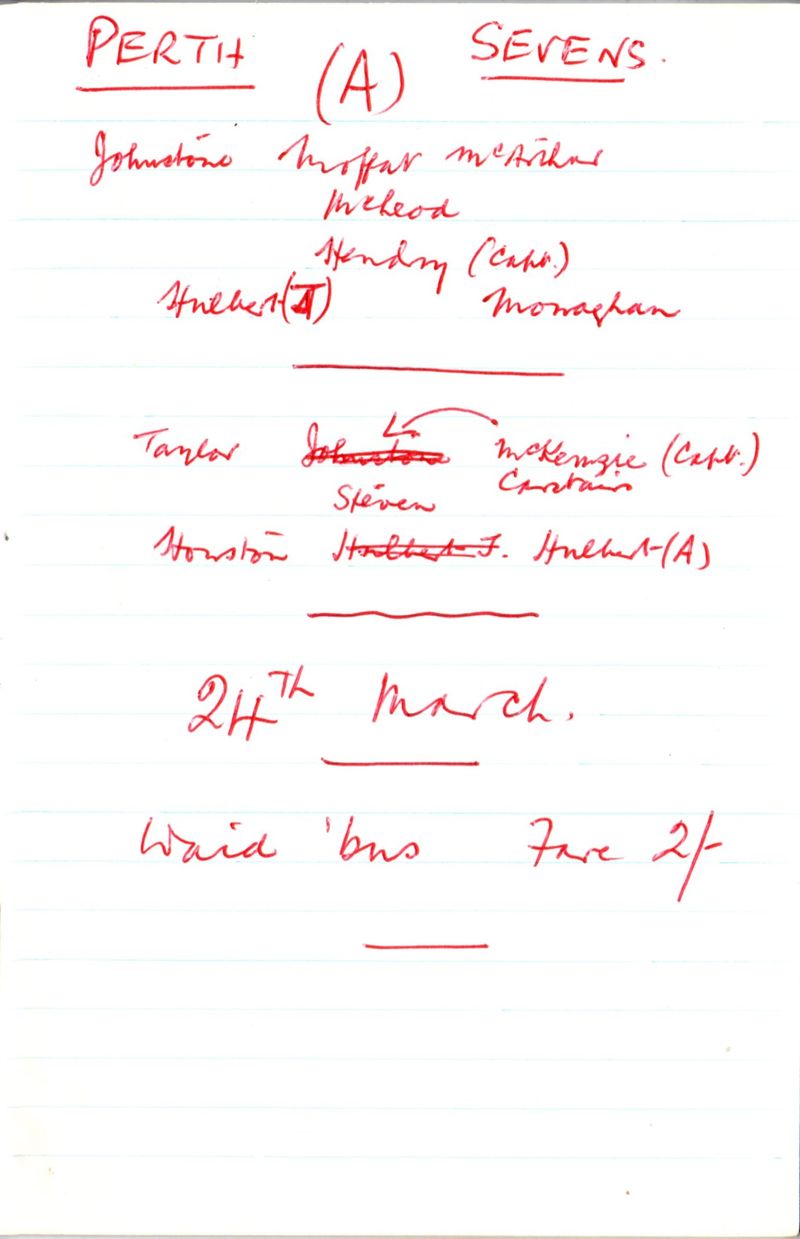 PERTH (A) SEVENS.
Johnstone Moffat McArthur
McLeod
Hendry (Capt.)
Hulbert (J) Monaghan
Taylor Johnstone McKenzie (Capt.)
Carstairs
Steven
Houston Hulbert J. Hulbert (A)
24TH March.
Waid 'bus Fare 2/-